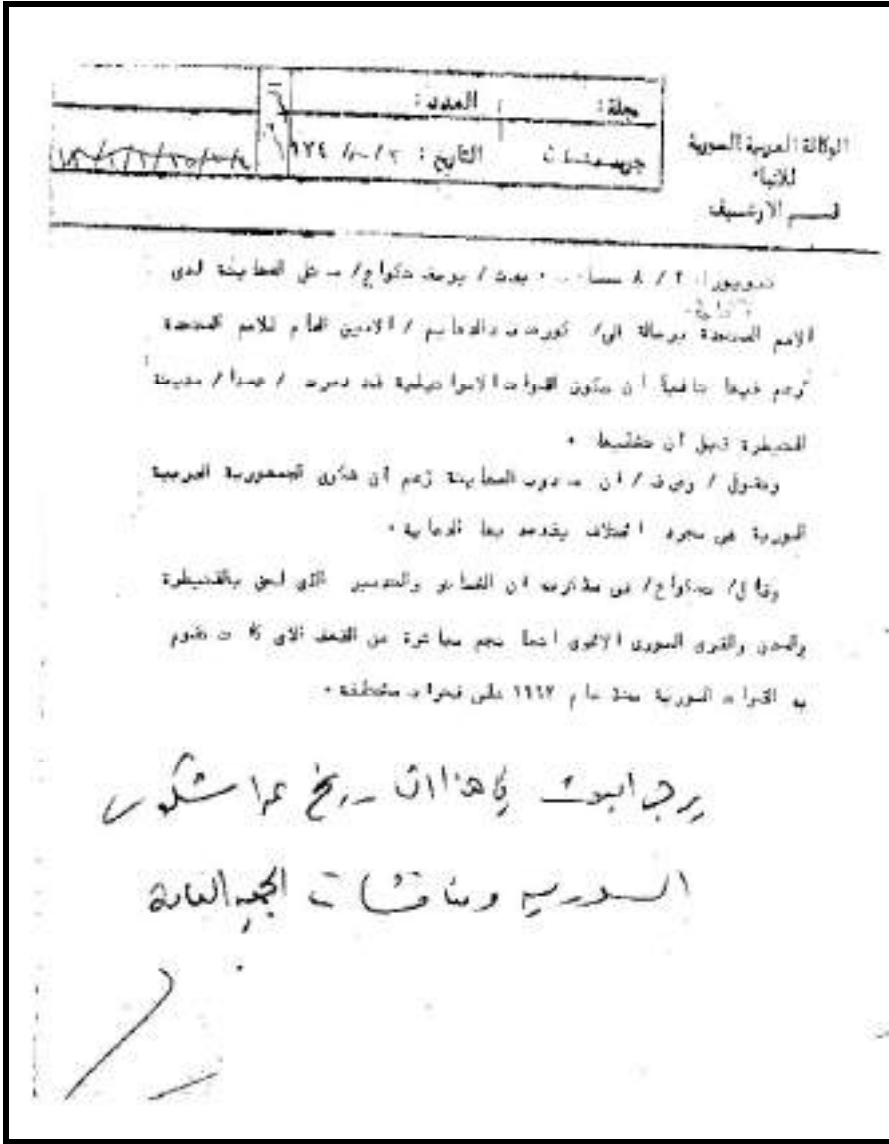 الوكالة العربية السورية
للانباء
قسم الارشيف
مجلة :
العدد :
التاريخ :
نيويورك ٢ / ٨ بعث / يوسف تكواع / الصهاينة لدى
الامم المتحدة برسالة الى / كورت فالدهايم / الامين العام للامم المتحدة
زعم فيها أن تكون القوات الاسرائيلية قد دمرت / عمدا / مدينة
القنيطرة قبل أن
وتقول / / ان مندوب الصهاينة زعم أن شكوى الجمهورية العربية
السورية هي مجرد يقصد بها الدعاية .
وقال / تكواع / في مذكرته ان والتدمير الذي لحق بالقنيطرة
والمدن والقرى السورية الاخرى انما نجم مباشرة عن القصف الذي كانت تقوم
به القوات السورية منذ عام ١٩٦٧ على فترات مختلفة .
يرجى البحث في هذا التاريخ عن شكوى
السورية ومناقشات الجمعية العامة